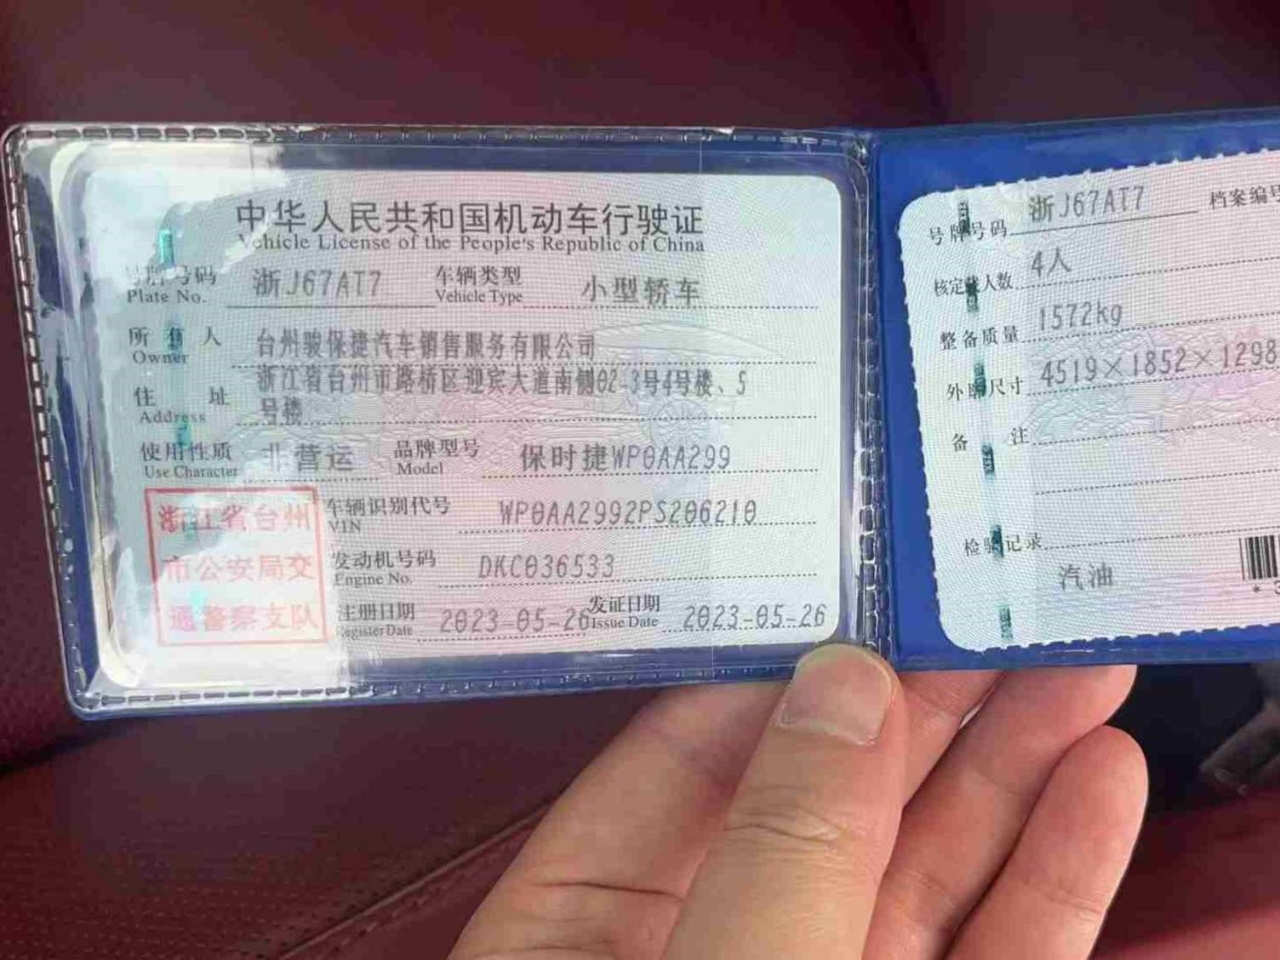 中华人民共和国机动车行驶证
Vehicle License of the People's Republic of China
号牌号码 浙J67AT7 车辆类型 小型轿车
Plate No. Vehicle Type
所有人 台州骏保捷汽车销售服务有限公司
Owner
住址 浙江省台州市路桥区迎宾大道南侧02-3号4号楼、5
号楼
Address
使用性质 非营运 品牌型号 保时捷WP0AA299
Use Character Model
浙江省台州
市公安局交
通警察支队
车辆识别代号 WP0AA2992PS206210
VIN
发动机号码 DKC036533
Engine No.
注册日期 2023-05-26 发证日期 2023-05-26
Register Date Issue Date
号牌号码 浙J67AT7 档案编号
核定载人数 4人
整备质量 1572kg
外廓尺寸 4519×1852×1298
备注
检验记录
汽油